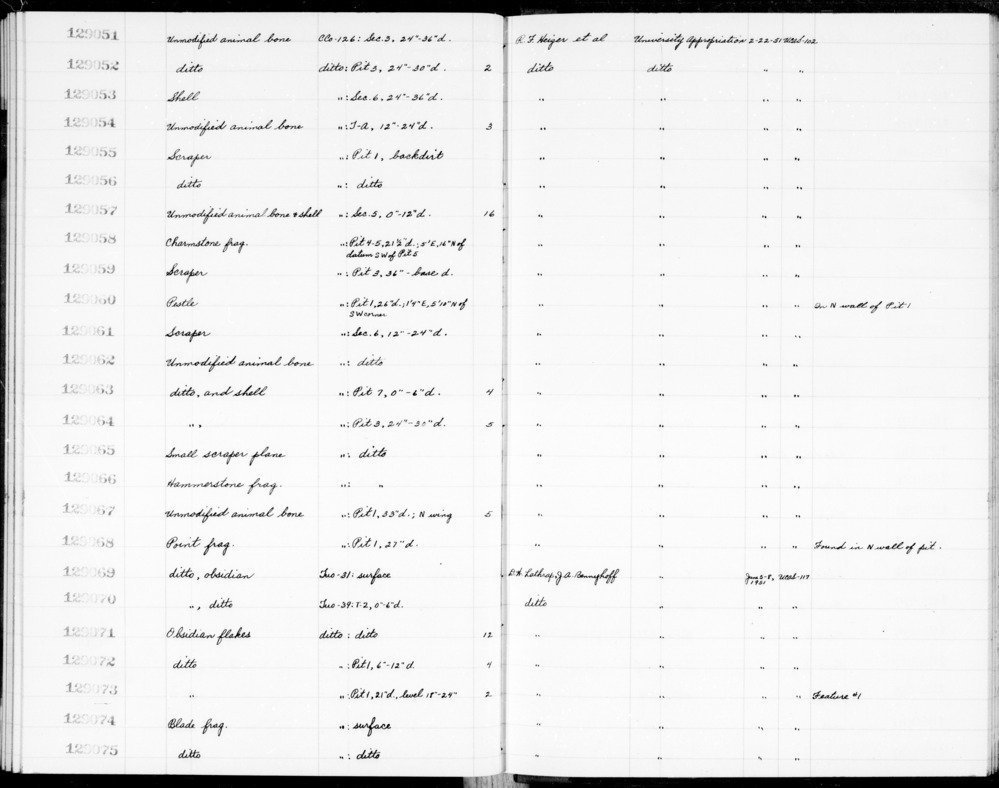 129051 Unmodified animal bone CCo-126: Sec. 3, 24"-36"d. R. F. Heizer et al University Appropriation 2-22-51 UCAS-102
129052 ditto ditto: Pit 3, 24"-30"d. 2 ditto ditto " "
129053 Shell ": Sec. 6, 24"-36"d. " " " "
129054 Unmodified animal bone ": T-A, 12"-24"d. 3 " " " "
129055 Scraper ": Pit 1, backdirt " " " "
129056 ditto ": ditto " " " "
129057 Unmodified animal bone & shell ": Sec. 5, 0"-12"d. 16 " " " "
129058 Charmstone frag. ": Pit 4-5, 21½"d.; 5'E, 16"N of " " " "
datum SW of Pit 5
129059 Scraper ": Pit 3, 36"-base d. " " " "
129060 Pestle ": Pit 1, 26"d.; 1'4"E, 5'10"N of " " " " In N wall of Pit 1
SW corner
129061 Scraper ": Sec. 6, 12"-24"d. " " " "
129062 Unmodified animal bone ": ditto " " " "
129063 ditto, and shell ": Pit 7, 0"-6"d. 4 " " " "
129064 ", ": Pit 3, 24"-30"d. 5 " " " "
129065 Small scraper plane ": ditto " " " "
129066 Hammerstone frag. ": " " " " "
129067 Unmodified animal bone ": Pit 1, 33"d.; N wing 5 " " " "
129068 Point frag. ": Pit 1, 27"d. " " " " Found in N wall of pit.
129069 ditto, obsidian Tuo-31: surface D. W. Lathrap, J. A. Bennyhoff " June 5-8, UCAS-117
1951
129070 ", ditto Tuo-39: T-2, 0"-6"d. ditto " " "
129071 Obsidian flakes ditto: ditto 12 " " " "
129072 ditto ": Pit 1, 6"-12"d. 4 " " " "
129073 " ": Pit 1, 21"d., level 18"-24" 2 " " " " Feature #1
129074 Blade frag. ": surface " " " "
129075 ditto ": ditto " " " "